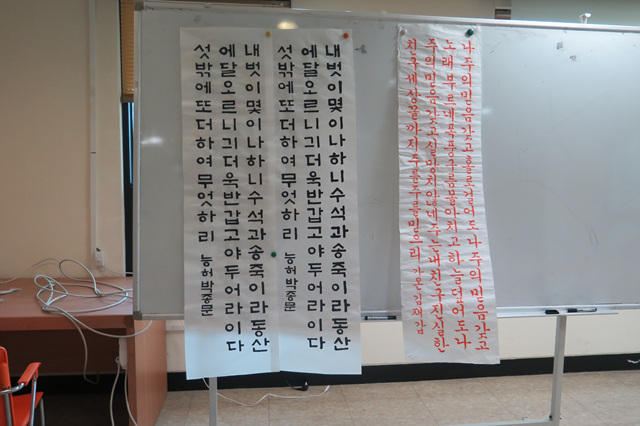 내벗이몇이나하니수석과송죽이라동산
에달오르니긔더욱반갑고야두어라이다
섯밖에또더하여무엇하리 능허박종문
내벗이몇이나하니수석과송죽이라동산
에달오르니긔더욱반갑고야두어라이다
섯밖에또더하여무엇하리 능허박종문
나주의믿음갖고홀로걸어도나주의믿음갖고
노래부르네폭풍구름몰아치고하늘덮어도나
주의믿음갖고실망치않네주는내친구진실한
친구세상끝까지주를주를믿으리 김재감